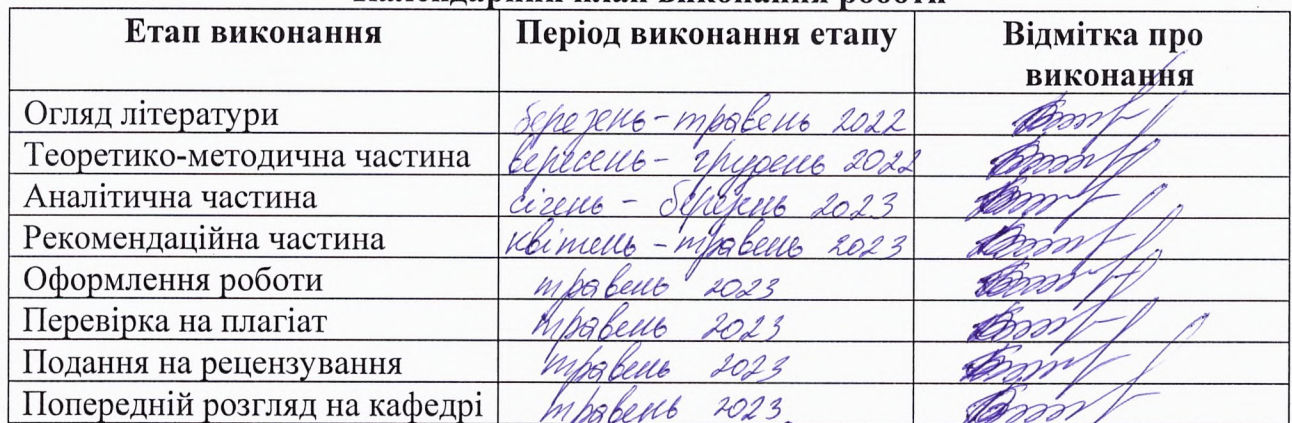 Календарний план виконання роботи
Етап виконання Період виконання етапу Відмітка про виконання
Огляд літератури березень - травень 2022
Теоретико-методична частина вересень - грудень 2022
Аналітична частина січень - березень 2023
Рекомендаційна частина квітень - травень 2023
Оформлення роботи травень 2023
Перевірка на плагіат травень 2023
Подання на рецензування травень 2023
Попередній розгляд на кафедрі травень 2023.